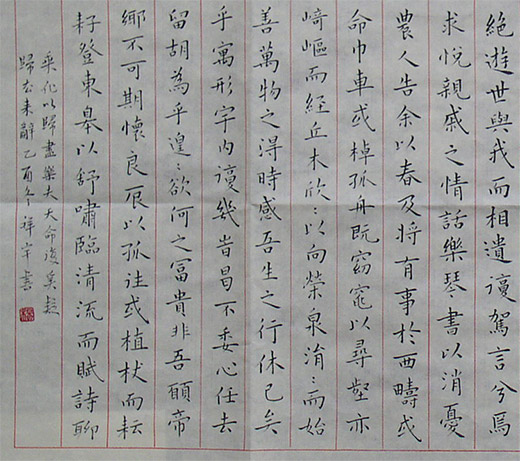 絕遊世與我而相遺復駕言兮焉
求悅親戚之情話樂琴書以消憂
農人告余以春及將有事於西疇或
命巾車或棹孤舟既窈窕以尋壑亦
崎嶇而經丘木欣〻以向榮泉涓〻而始
善萬物之得時感吾生之行休已矣
乎寓形宇內復幾旹曷不委心任去
留胡為乎遑〻欲何之富貴非吾願帝
鄉不可期懷良辰以孤往或植杖而耘
耔登東皋以舒嘯臨清流而賦詩聊
乘化以歸盡樂夫天命復奚疑
歸去來辭乙酉冬祥宇書